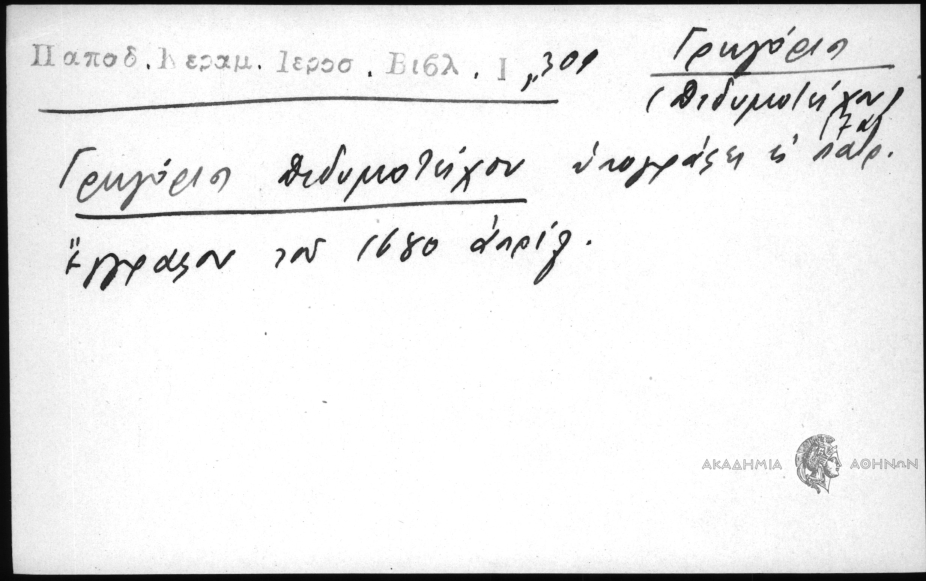 Παποδ. Κεραμ. Ιεροσ. Βιβλ. Ι, 309
Γρηγόριος
(Διδυμοτείχου)
17 αἰ
Γρηγόριος Διδυμοτείχου ὑπογράφει
ἔγγραφον τοῦ 1680 ἀπριλ.
ΑΚΑΔΗΜΙΑ ΑΘΗΝΩΝ